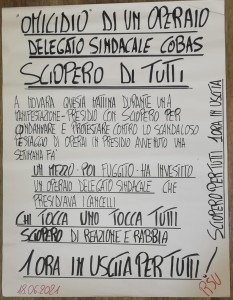 "OMICIDIO" DI UN OPERAIO
DELEGATO SINDACALE COBAS
SCIOPERO DI TUTTI
A NOVARA QUESTA MATTINA DURANTE UNA
MANIFESTAZIONE-PRESIDIO CON SCIOPERO PER
CONDANNARE E PROTESTARE CONTRO LO SCANDALOSO
PESTAGGIO DI OPERAI IN PRESIDIO AVVENUTO UNA
SETTIMANA FA'
UN MEZZO - POI FUGGITO - HA INVESTITO
UN OPERAIO DELEGATO SINDACALE CHE
PRESIDIAVA I CANCELLI
CHI TOCCA UNO TOCCA TUTTI
SCIOPERO DI REAZIONE E RABBIA
1 ORA IN USCITA PER TUTTI
18.06.2021
RSU
SCIOPERO PER TUTTI 1 ORA IN USCITA